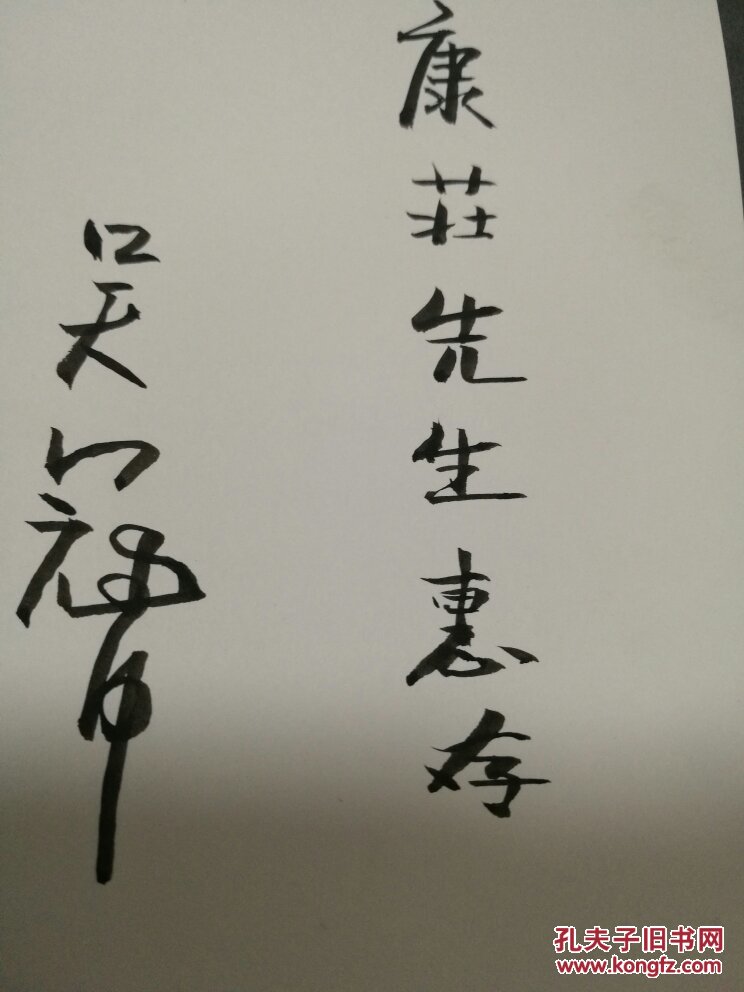 康莊先生惠存
吴
孔夫子旧书网
www.kongfz.com